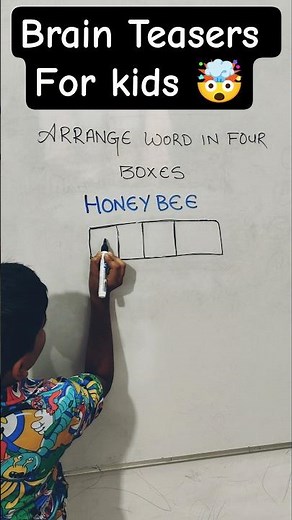 Brain Teasers
For kids 🤯
ARRANGE WORD IN FOUR
BOXES
HONEY BEE